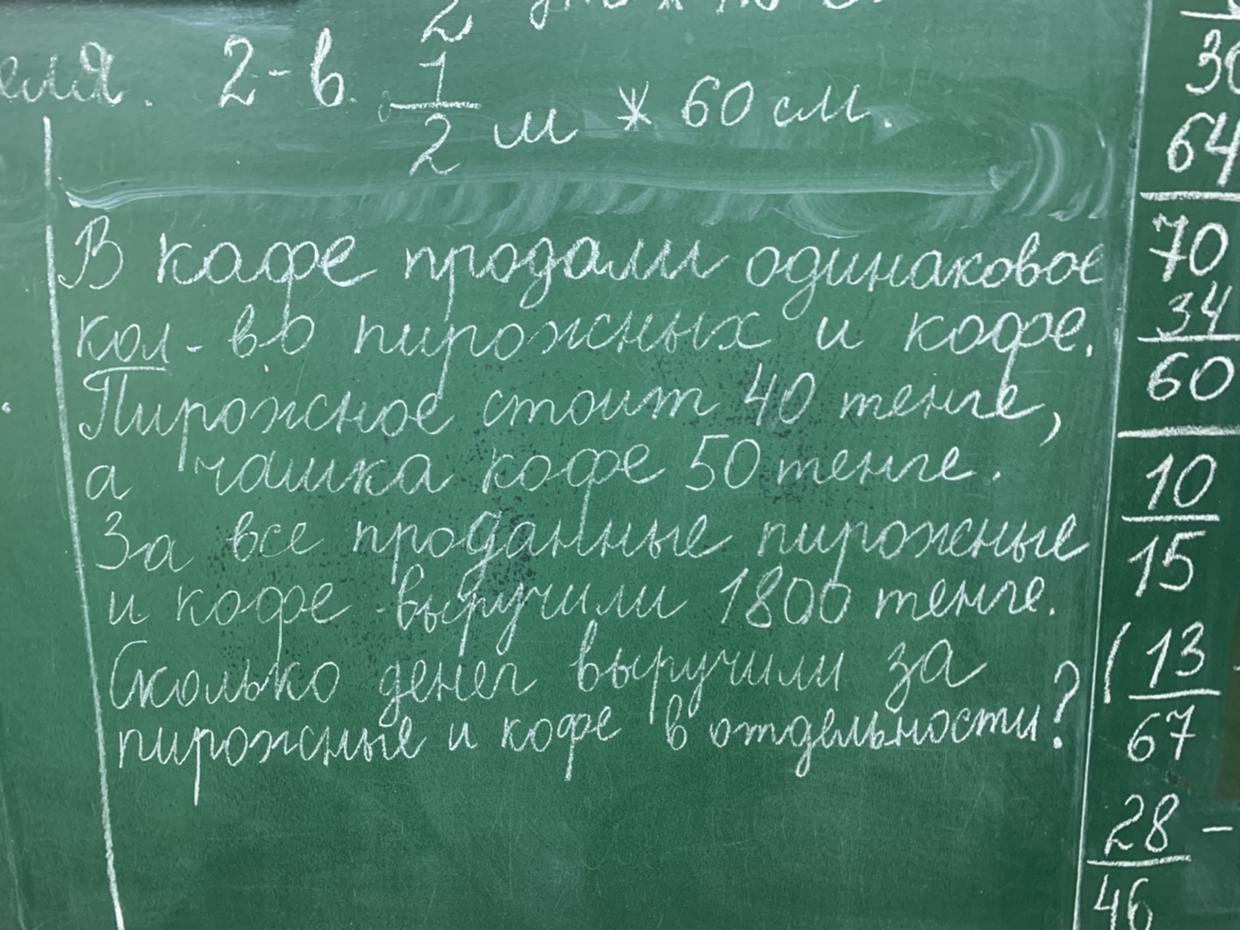 2
еля. 2-в. 1/2 м * 60 см.
В кафе продали одинаковое
кол-во пирожных и кофе.
Пирожное стоит 40 тенге,
а чашка кофе 50 тенге.
За все проданные пирожные
и кофе выручили 1800 тенге.
Сколько денег выручили за
пирожные и кофе в отдельности?
64
70
34
60
10
15
(13
67
28 -
46